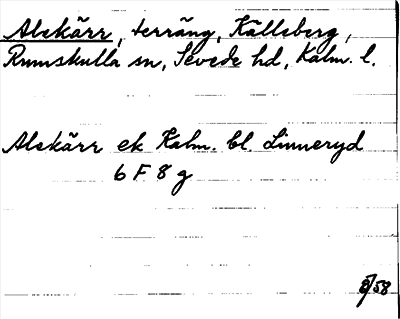 Alekärr, terräng, Källeberg,
Rumskulla sn, Sevede hd, Kalm. l.
Alekärr ek Kalm. bl. Linneryd
6 F 8 g
8/58